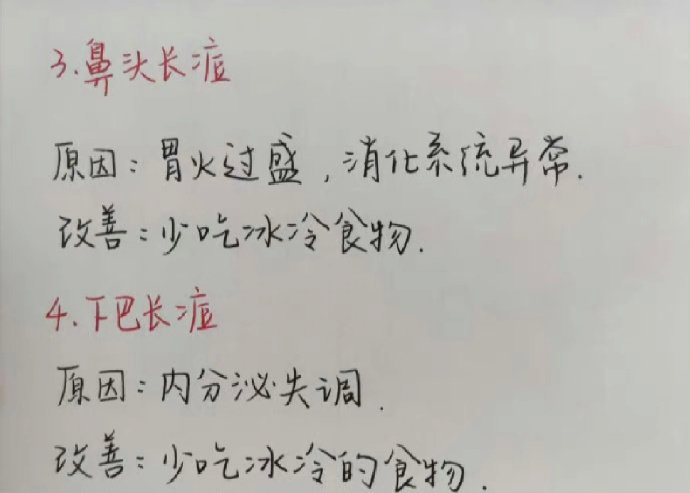 3.鼻头长痘
原因：胃火过盛，消化系统异常.
改善：少吃冰冷食物.
4.下巴长痘
原因：内分泌失调.
改善：少吃冰冷的食物.